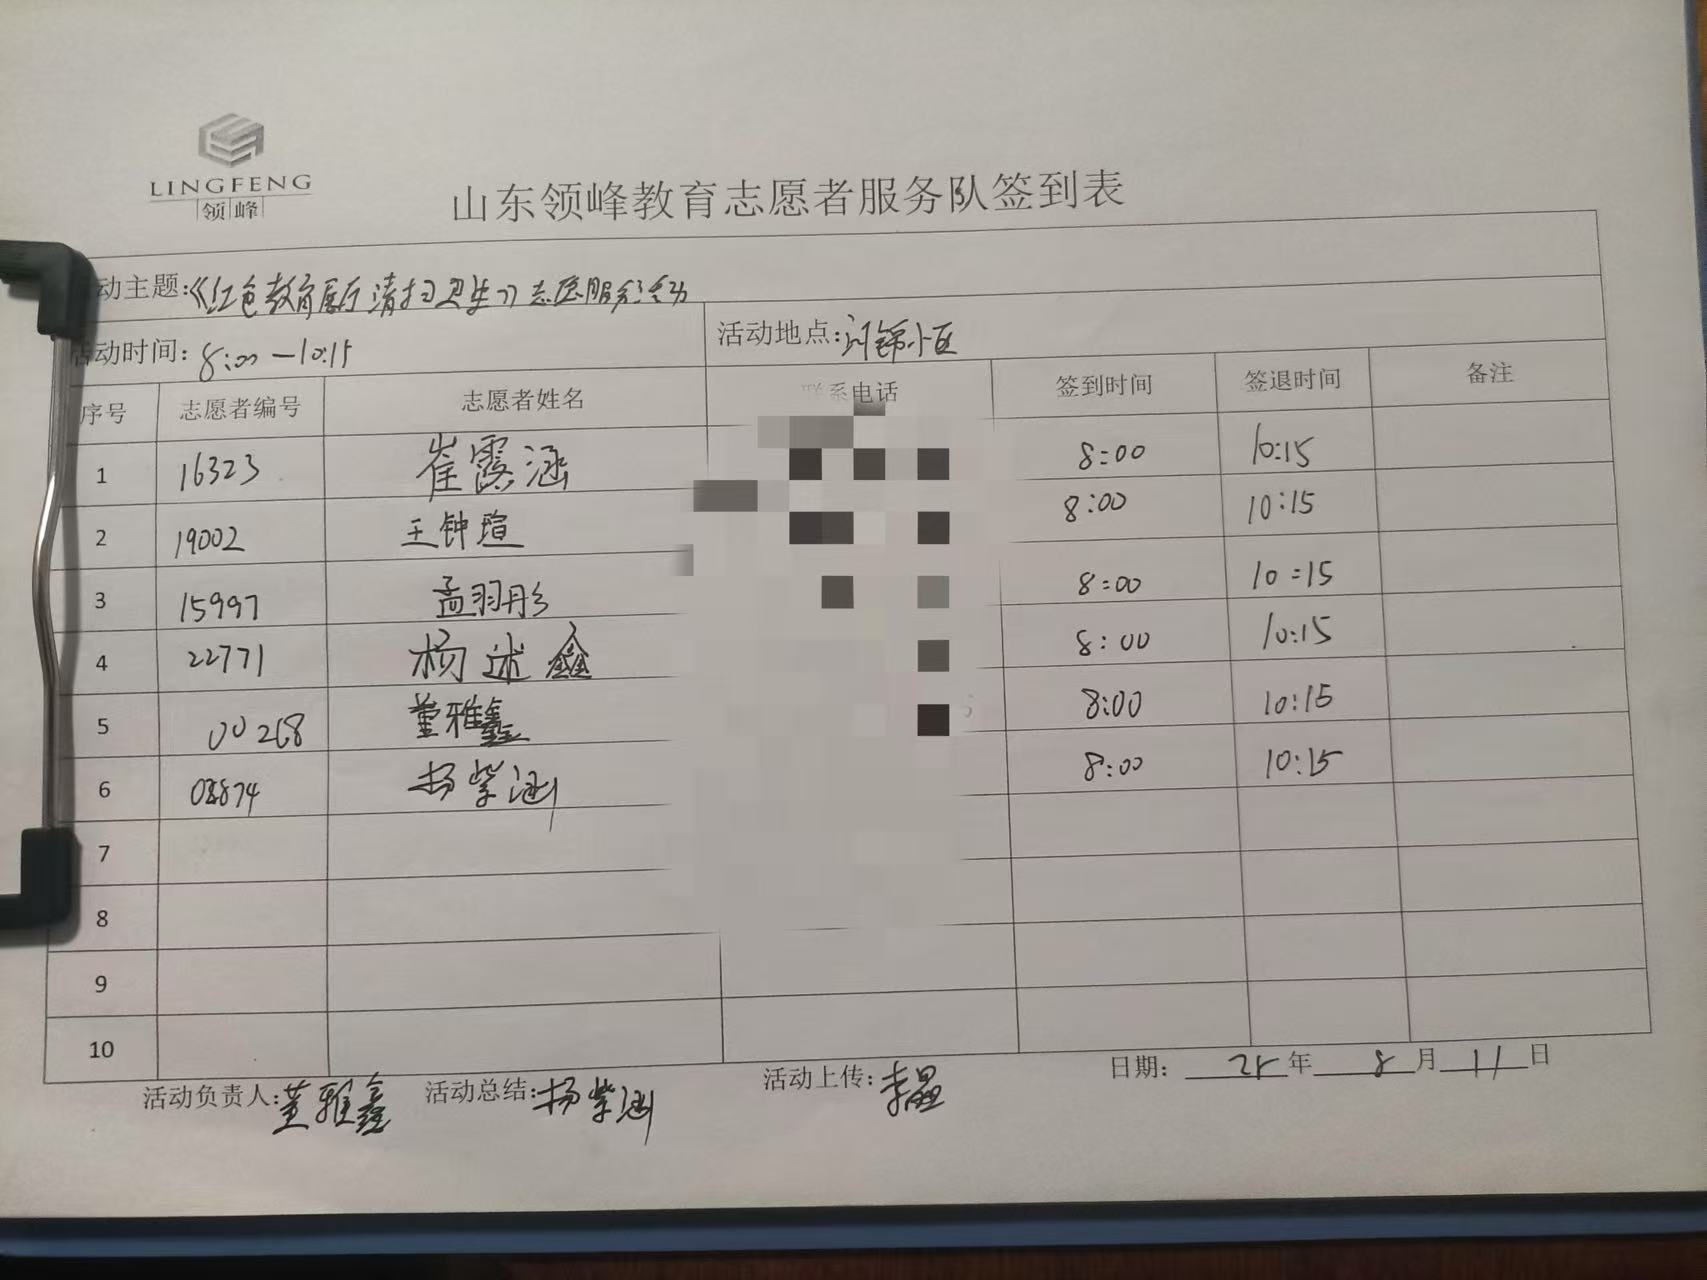 LINGFENG
领峰
山东领峰教育志愿者服务队签到表
动主题:《红色教育展厅清扫卫生》志愿服务活动
活动时间: 8:00—10:15 活动地点: 小区
序号 志愿者编号 志愿者姓名 联系电话 签到时间 签退时间 备注
1 16323 崔霞涵 8:00 10:15
2 19002 王钟瑄 8:00 10:15
3 15997 孟羽彤 8:00 10:15
4 22771 杨述鑫 8:00 10:15
5 00268 董雅鑫 8:00 10:15
6 08874 杨紫涵 8:00 10:15
7
8
9
10
活动负责人: 董雅鑫 活动总结: 杨紫涵 活动上传: 李晶 日期: 25年8月11日